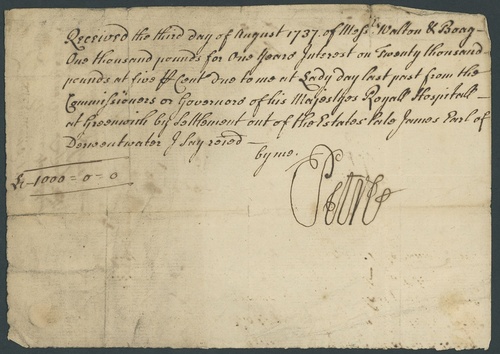 Received the third day of August 1737. of Messrs. Walton & Boag
One thousand pounds for One Years Interest on Twenty thousand
pounds at five P Cent due to me at Lady day last past from the
Commissioners or Governors of his Majestyes Royall Hospitall
at Greenwich by Settlement out of the Estates late James Earl of
Derwentwater I say reced
by me.
£ - 1000 = 0 = 0
Petre